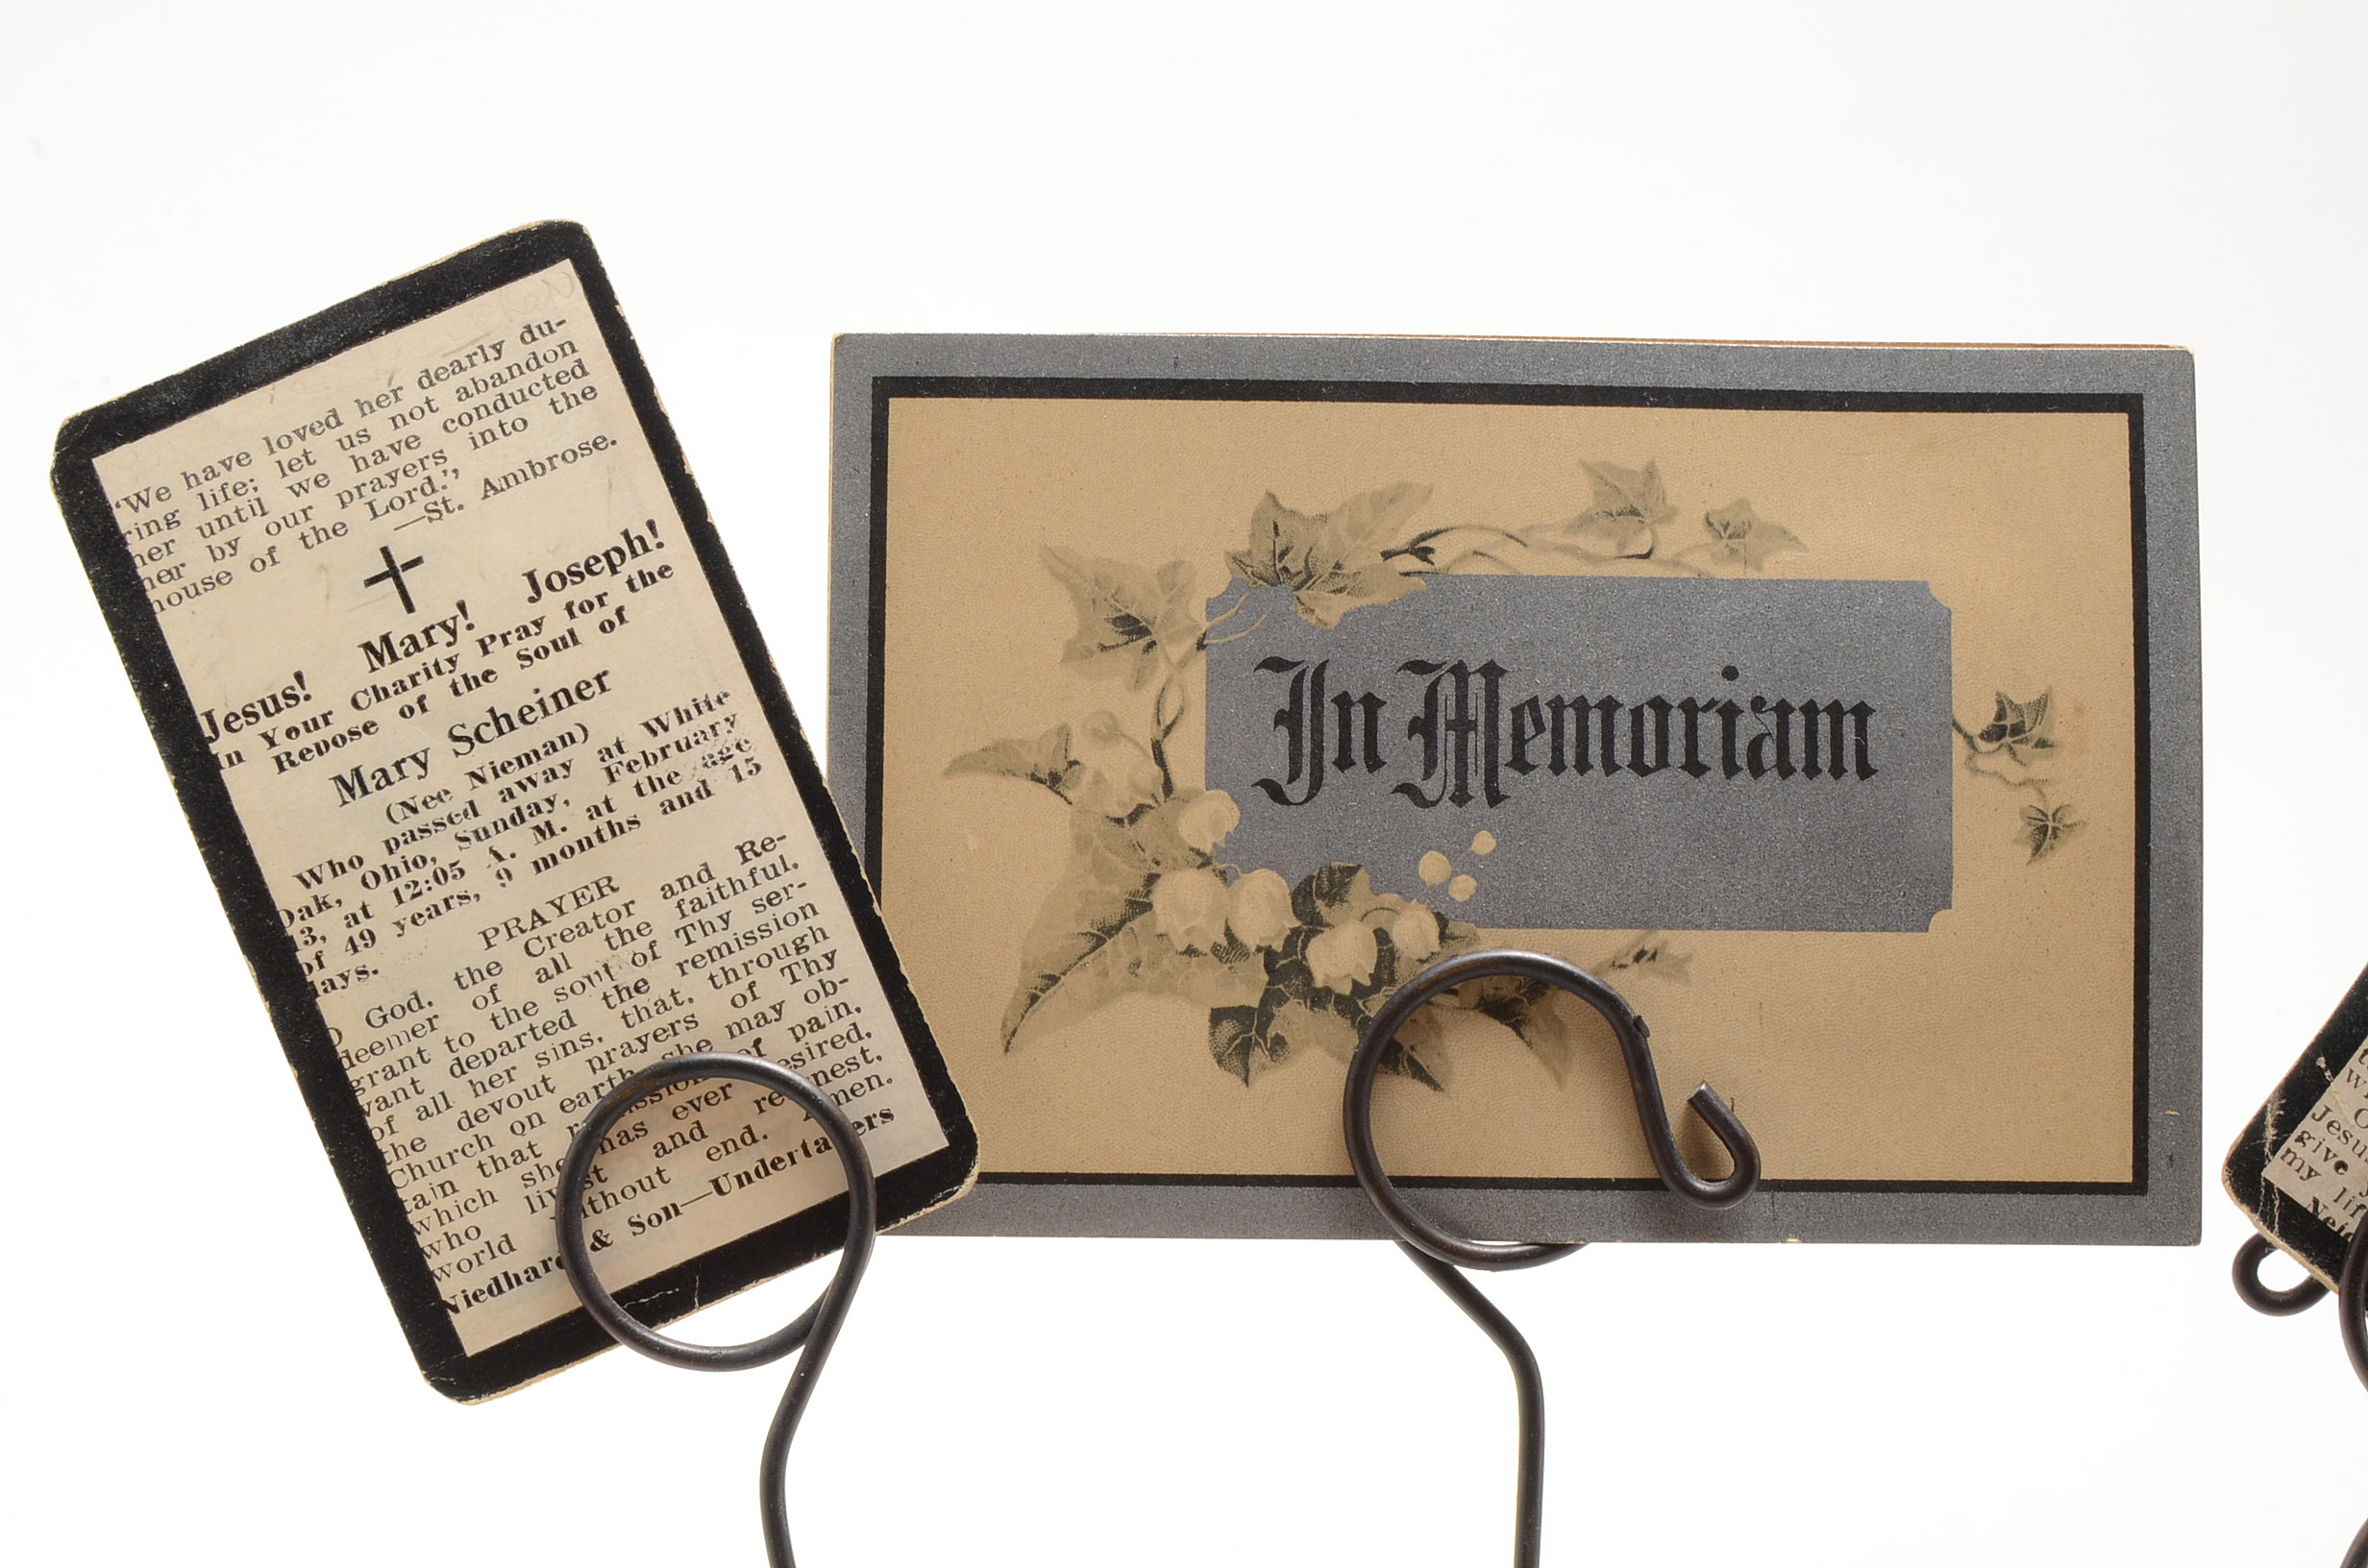 "We have loved her dearly du-
ring life; let us not abandon
her until we have conducted
her by our prayers into the
house of the Lord.',
—St. Ambrose.
Jesus! Mary! Joseph!
In Your Charity Pray for the
Repose of the Soul of
Mary Scheiner
(Nee Nieman)
Who passed away at White
Oak, Ohio, Sunday, February
13, at 12:05 A. M. at the age
of 49 years, 9 months and 15
days.
PRAYER
O God, the Creator and Re-
deemer of all the faithful,
grant to the soul of Thy ser-
vant departed the remission
of all her sins, that, through
the devout prayers of Thy
Church on earth she may ob-
tain that remission of pain,
which she has ever desired,
who livest and
world without end. Amen.
& Son—Undertakers
In Memoriam
Jesu
give
my lif